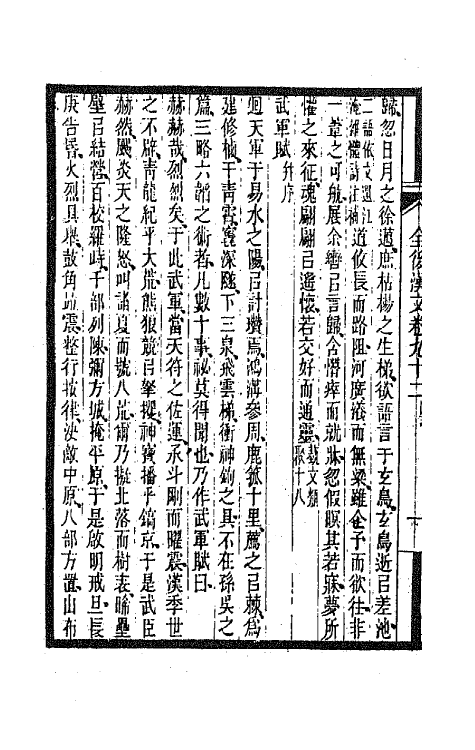 全後漢文卷九十二
歸忽日月之徐邁庶枯楊之生稊欲語言于玄鳥玄鳥逝㠯差池
二語依文選江淹雜體詩注補道攸長而路阻河廣瀁而無梁雖企予而欲往非
一葦之可航展余轡㠯言歸含憯瘁而就牀忽假暝其若寐夢所
懽之來征魂翩翩㠯遙懷若交好而通靈藝文類聚十八
武軍賦并序
迴天軍于易水之陽㠯討瓚焉鴻溝參周鹿菰十里薦之㠯棘爲
建修櫓干青霄竁深隧下三泉飛雲梯衝神鉤之具不在孫吳之
篇三略六韜之術者凡數十事祕莫得聞也乃作武軍賦曰
赫赫哉烈烈矣于此武軍當天符之佐運承斗剛而曜震漢季世
之不辟青龍紀乎大荒熊狼競㠯拏攫神寶播乎鎬京于是武臣
赫然颺炎天之隆怒叫諸夏而號八荒爾乃擬北落而樹表晞壘
壁㠯結營百校羅峙千部列陳彌方城掩平原于是啟明戒旦長
庚告昏火烈具舉鼓角並震整行按律決敵中原八部方置山布